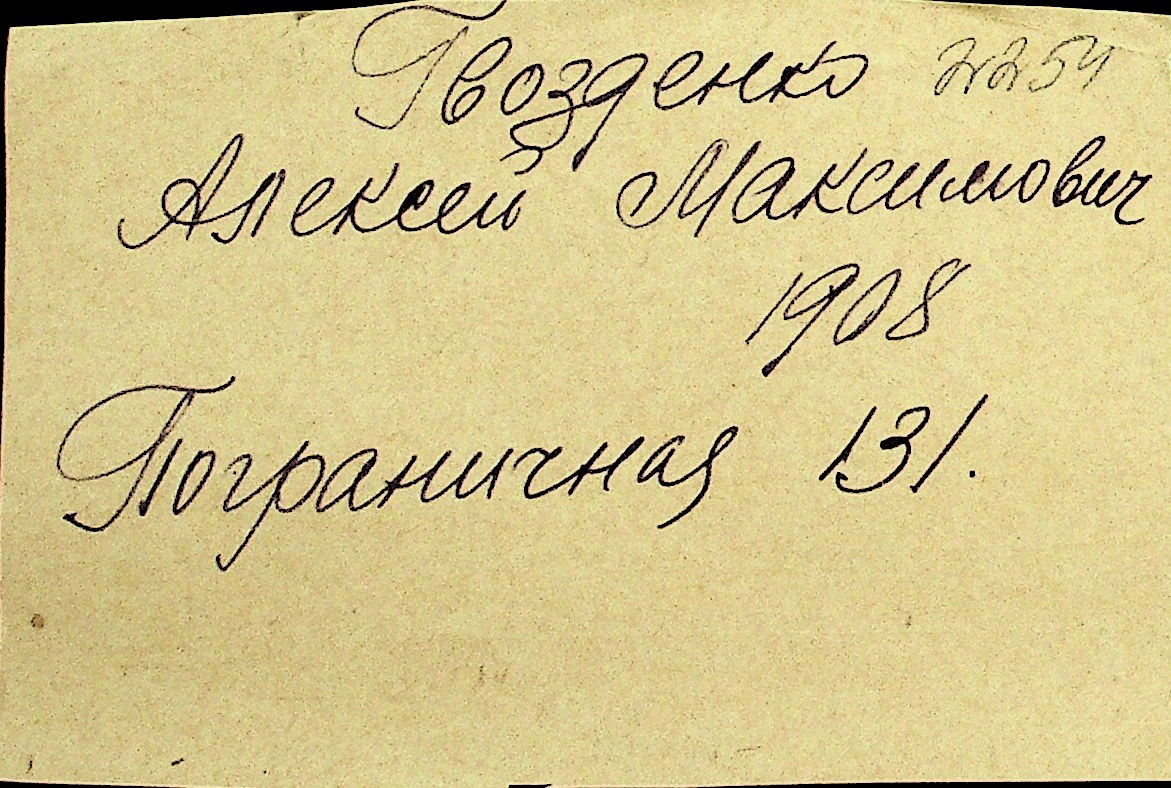 Гвозденко 2254
Алексей Максимович
1908
Пограничная 131.